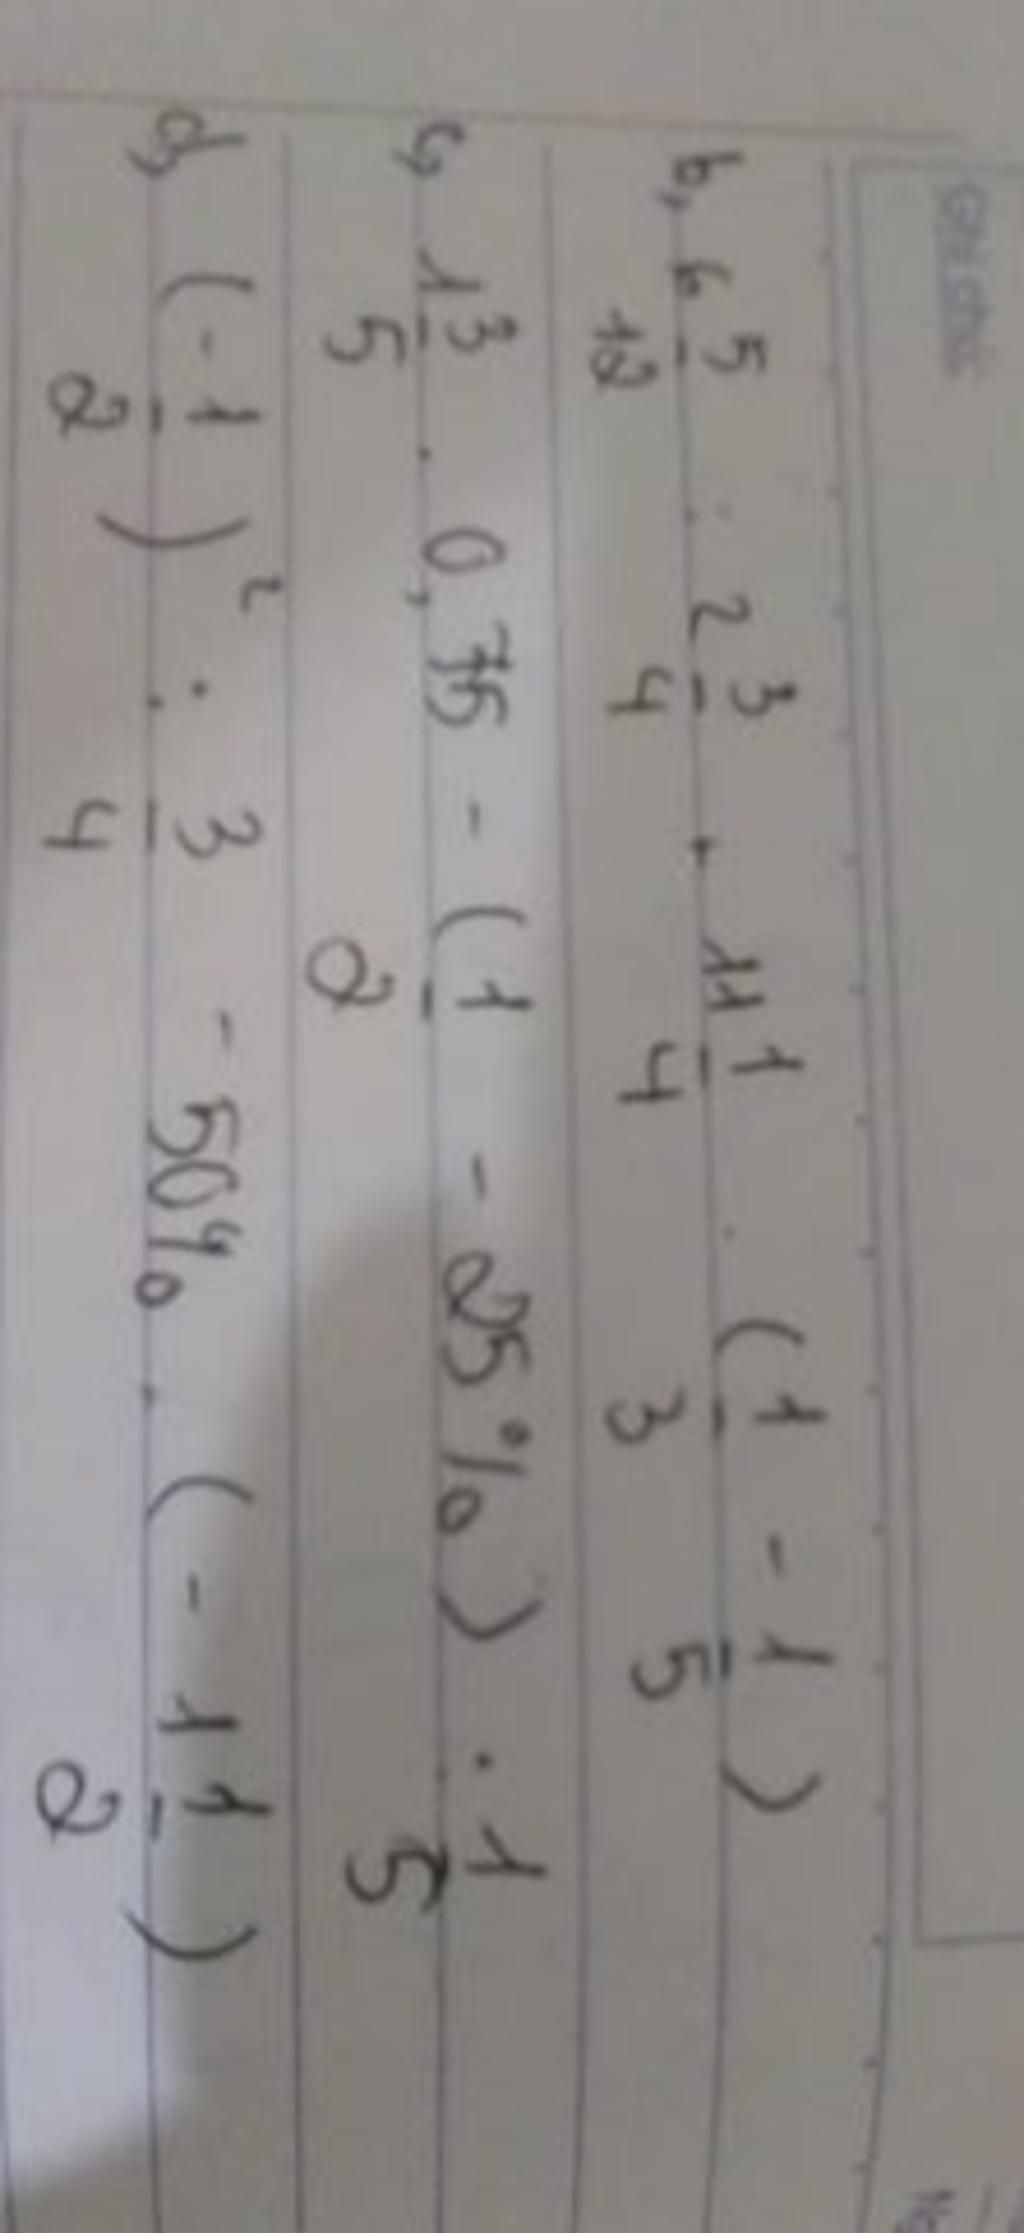 Ghi chú:
b, 6 5/12 : 2 3/4 + 11 1/4 . (1/3 - 1/5)
c, 1 3/5 . 0,75 - (1/2 - 25%) : 1/5
d, (-1/2)² : 3/4 - 50% . (-1 1/2)